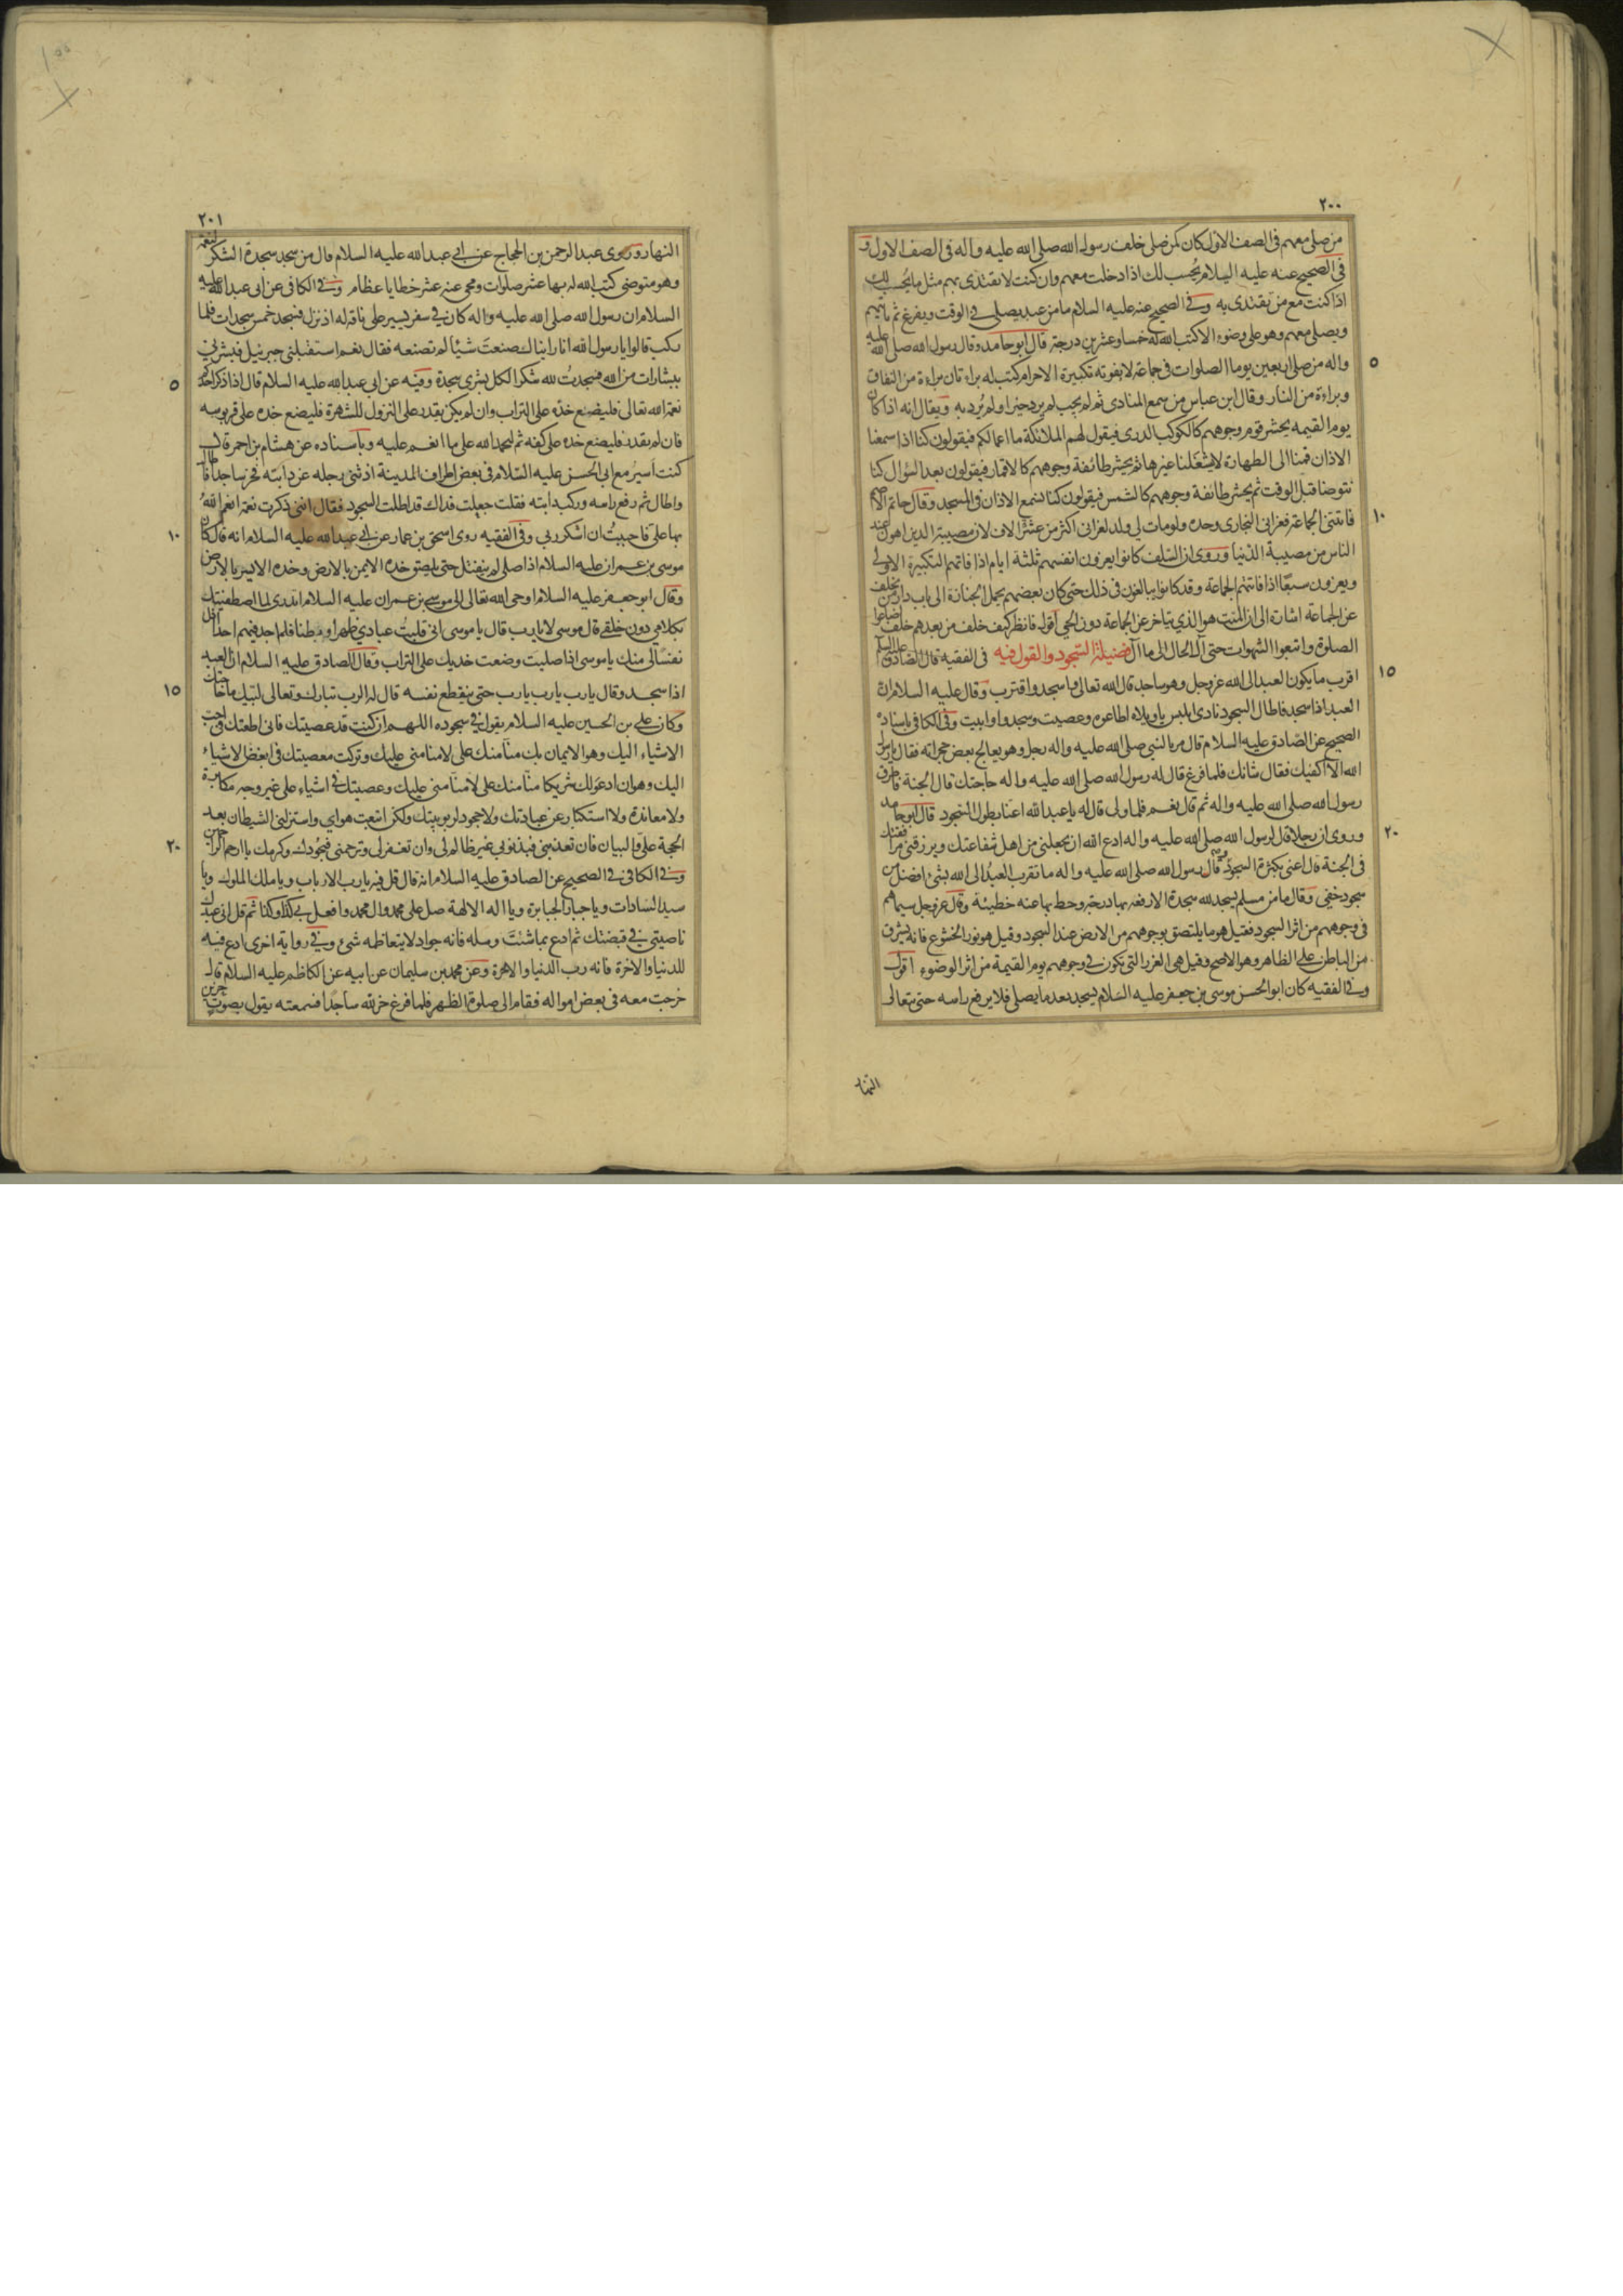 ٢٠٠
من صلى معهم فى الصف الاول كان كمن صلى خلف رسول الله صلى الله عليه واله فى الصف الاول و
فى الصحيح عنه عليه السلام يُحسب لك اذا دخلت معهم وان كنت لا تقتدى بهم مثل ما يُحسب لك
اذا كنت مع من تقتدى به وفى الصحيح عنه عليه السلام ما من عبد يصلى فى الوقت ويفرغ ثم ياتيهم
ويصلى معهم وهو على وضوء الا كتب الله له خمسا وعشرين درجة قال ابو حامد وقال رسول الله صلى الله عليه
٥
واله من صلى اربعين يوما الصلوات فى جماعة لا تفوته تكبيرة الاحرام كتب له براءتان براءة من النفاق
وبراءة من النار وقال ابن عباس من سمع المنادى ثم لم يجب لم يرد خيرا ولم يُرد به ويقال انه اذا كان
يوم القيمة يحشر قوم وجوههم كالكوكب الدرى فيقول لهم الملائكة ما اعمالكم فيقولون كنا اذا سمعنا
الاذان قمنا الى الطهارة لا يشغلنا غيرها ثم يحشر طائفة وجوههم كالاقمار فيقولون بعد السؤال كنا
نتوضا قبل الوقت ثم يحشر طائفة وجوههم كالشمس فيقولون كنا نسمع الاذان فى المسجد وقال حاتم الاصم
١٠
فاتتنى الجماعة فعزانى البخارى وحده ولو مات لى ولد لعزانى اكثر من عشرة الاف لان مصيبة الدين اهون عند
الناس من مصيبة الدنيا وروى ان السلف كانوا يعزون انفسهم ثلثة ايام اذا فاتتهم التكبيرة الاولى
ويعزون سبعًا اذا فاتتهم الجماعة وقد كانوا يبالغون فى ذلك حتى كان بعضهم يحمل الجنازة الى باب دار من يخلف
عن الجماعة اشارة الى ان الميت هو الذي يتاخر عن الجماعة دون الحي اقول فانظر كيف خلف من بعدهم خلف اضاعوا
الصلوة واتبعوا الشهوات حتى آل الحال الى ما آل فضيلة السجود والقول فيه فى الفقيه قال الصادق عليه السلم
١٥
اقرب ما يكون العبد الى الله عز وجل وهو ساجد قال الله تعالى واسجد واقترب وقال عليه السلام ان
العبد اذا سجد فاطال السجود نادى ابليس ياويلاه اطاعوه وعصيت وسجدوا وابيت وفى الكافى باسناده
الصحيح عن الصادق عليه السلام قال مر بالنبي صلى الله عليه واله رجل وهو يعالج بعض حجراته فقال يا رسول
الله الا اكفيك فقال شانك فلما فرغ قال له رسول الله صلى الله عليه واله حاجتك قال الجنة فاطرق
رسول الله صلى الله عليه واله ثم قال نعم فلما ولى قال له يا عبد الله اعنا بطول السجود قال ابو حامد
٢٠
وروى ان رجلا قال لرسول الله صلى الله عليه واله ادع الله ان يجعلنى من اهل شفاعتك ويرزقنى مرافقتك
فى الجنة قال اعنى بكثرة السجود وقال رسول الله صلى الله عليه واله ما تقرب العبدُ الى الله بشئ افضل من
سجود خفى وقال ما من مسلم يسجد لله سجدة الا رفعه بها درجة وحط بها عنه خطيئة وقال عز وجل سيماهم
فى وجوههم من اثر السجود فقيل هو ما يلتصق بوجوههم من الارض عند السجود وقيل هو نور الخشوع فانه يشرق
من الباطن على الظاهر وهو الاصح وقيل هى الغرر التى يكون فى وجوههم يوم القيمة من اثر الوضوء اقول
وفى الفقيه كان ابو الحسن موسى بن جعفر عليه السلام يسجد بعد ما يصلى فلا يرفع راسه حتى يتعالى
النهار
٢٠١
النهار وروى عبد الرحمن بن الحجاج عن ابى عبد الله عليه السلام قال من سجد سجدة الشكر لنعمة
وهو متوضئ كتب الله له بها عشر صلوات ومحى عنه عشر خطايا عظام وفى الكافى عن ابى عبد الله عليه
السلام ان رسول الله صلى الله عليه واله كان فى سفر يسير على ناقة له اذ نزل فسجد خمس سجدات فلما
ركب قالوا يا رسول الله انا رايناك صنعتَ شيئا لم تصنعه فقال نعم استقبلنى جبرئيل فبشرنى
٥
ببشارات من الله فسجدتُ لله شكرا لكل بشرى سجدة وفيه عن ابى عبد الله عليه السلام قال اذا ذكر احدكم
نعمة الله تعالى فليضع خده على التراب وان لم يكن يقدر على النزول للشهرة فليضع خده على قربوسه
فان لم يقدر فليضع خده على كفه ثم ليحمد الله على ما انعم عليه وباسناده عن هشام بن احمر قال
كنت اسير مع ابى الحسن عليه السلام فى بعض اطراف المدينة اذ ثنى رجله عن دابته فخر ساجدا فاطال
واطال ثم رفع راسه وركب دابته فقلت جعلت فداك قد اطلت السجود فقال اننى ذكرت نعمة انعم الله
١٠
بها علىّ فاحببتُ ان اشكر ربي وفى الفقيه روى اسحق بن عمار عن ابى عبد الله عليه السلام انه قال كان
موسى بن عمران عليه السلام اذا صلى لم ينفتل حتى يلصق خده الايمن بالارض وخده الايسر بالارض
وقال ابو جعفر عليه السلام اوحى الله تعالى الى موسى بن عمران عليه السلام اتدرى لما اصطفيتك
بكلامي دون خلقي قال موسى لا يا رب قال يا موسى انى قلبتُ عبادي ظهرا وبطنا فلم اجد فيهم احدا اذل
نفسا لى منك يا موسى اذا صليت وضعت خديك على التراب وقال الصادق عليه السلام ان العبد
١٥
اذا سجد وقال يا رب يا رب يا رب حتى ينقطع نفسه قال له الرب تبارك وتعالى لبيك ما حاجتك
وكان على بن الحسين عليه السلام يقول فى سجوده اللهم ان كنت قد عصيتك فانى اطعتك فى احب
الاشياء اليك وهو الايمان بك منا منك على لا منا منى عليك وتركت معصيتك فى ابغض الاشياء
اليك وهو ان ادعو لك شريكا منا منك على لا منا منى عليك وعصيتك فى اشياء على غير وجه مكابرة
ولا معاندة ولا استكبار عن عبادتك ولا جحود لربوبيتك ولكن اتبعت هواي واستزلنى الشيطان بعد
٢٠
الحجة علىّ والبيان فان تعذبنى فبذنوبي غير ظالم لى وان تغفر لى وترحمنى فبجودك وكرمك يا ارحم الراحمين
وفى الكافى فى الصحيح عن الصادق عليه السلام انه قال قل فيه يا رب الارباب ويا ملك الملوك ويا
سيد السادات ويا جبار الجبابرة ويا اله الالهة صل على محمد وال محمد وافعل بى كذا وكذا ثم قل انى عبدك
ناصيتى فى قبضتك ثم ادع بما شئت وسله فانه جواد لا يتعاظمه شئ وفى رواية اخرى ادع فيه
للدنيا والاخرة فانه رب الدنيا والاخرة وعن محمد بن سليمان عن ابيه عن الكاظم عليه السلام قال
خرجت معه فى بعض امواله فقام الى صلوة الظهر فلما فرغ خر لله ساجدا فسمعته يقول بصوت حزين